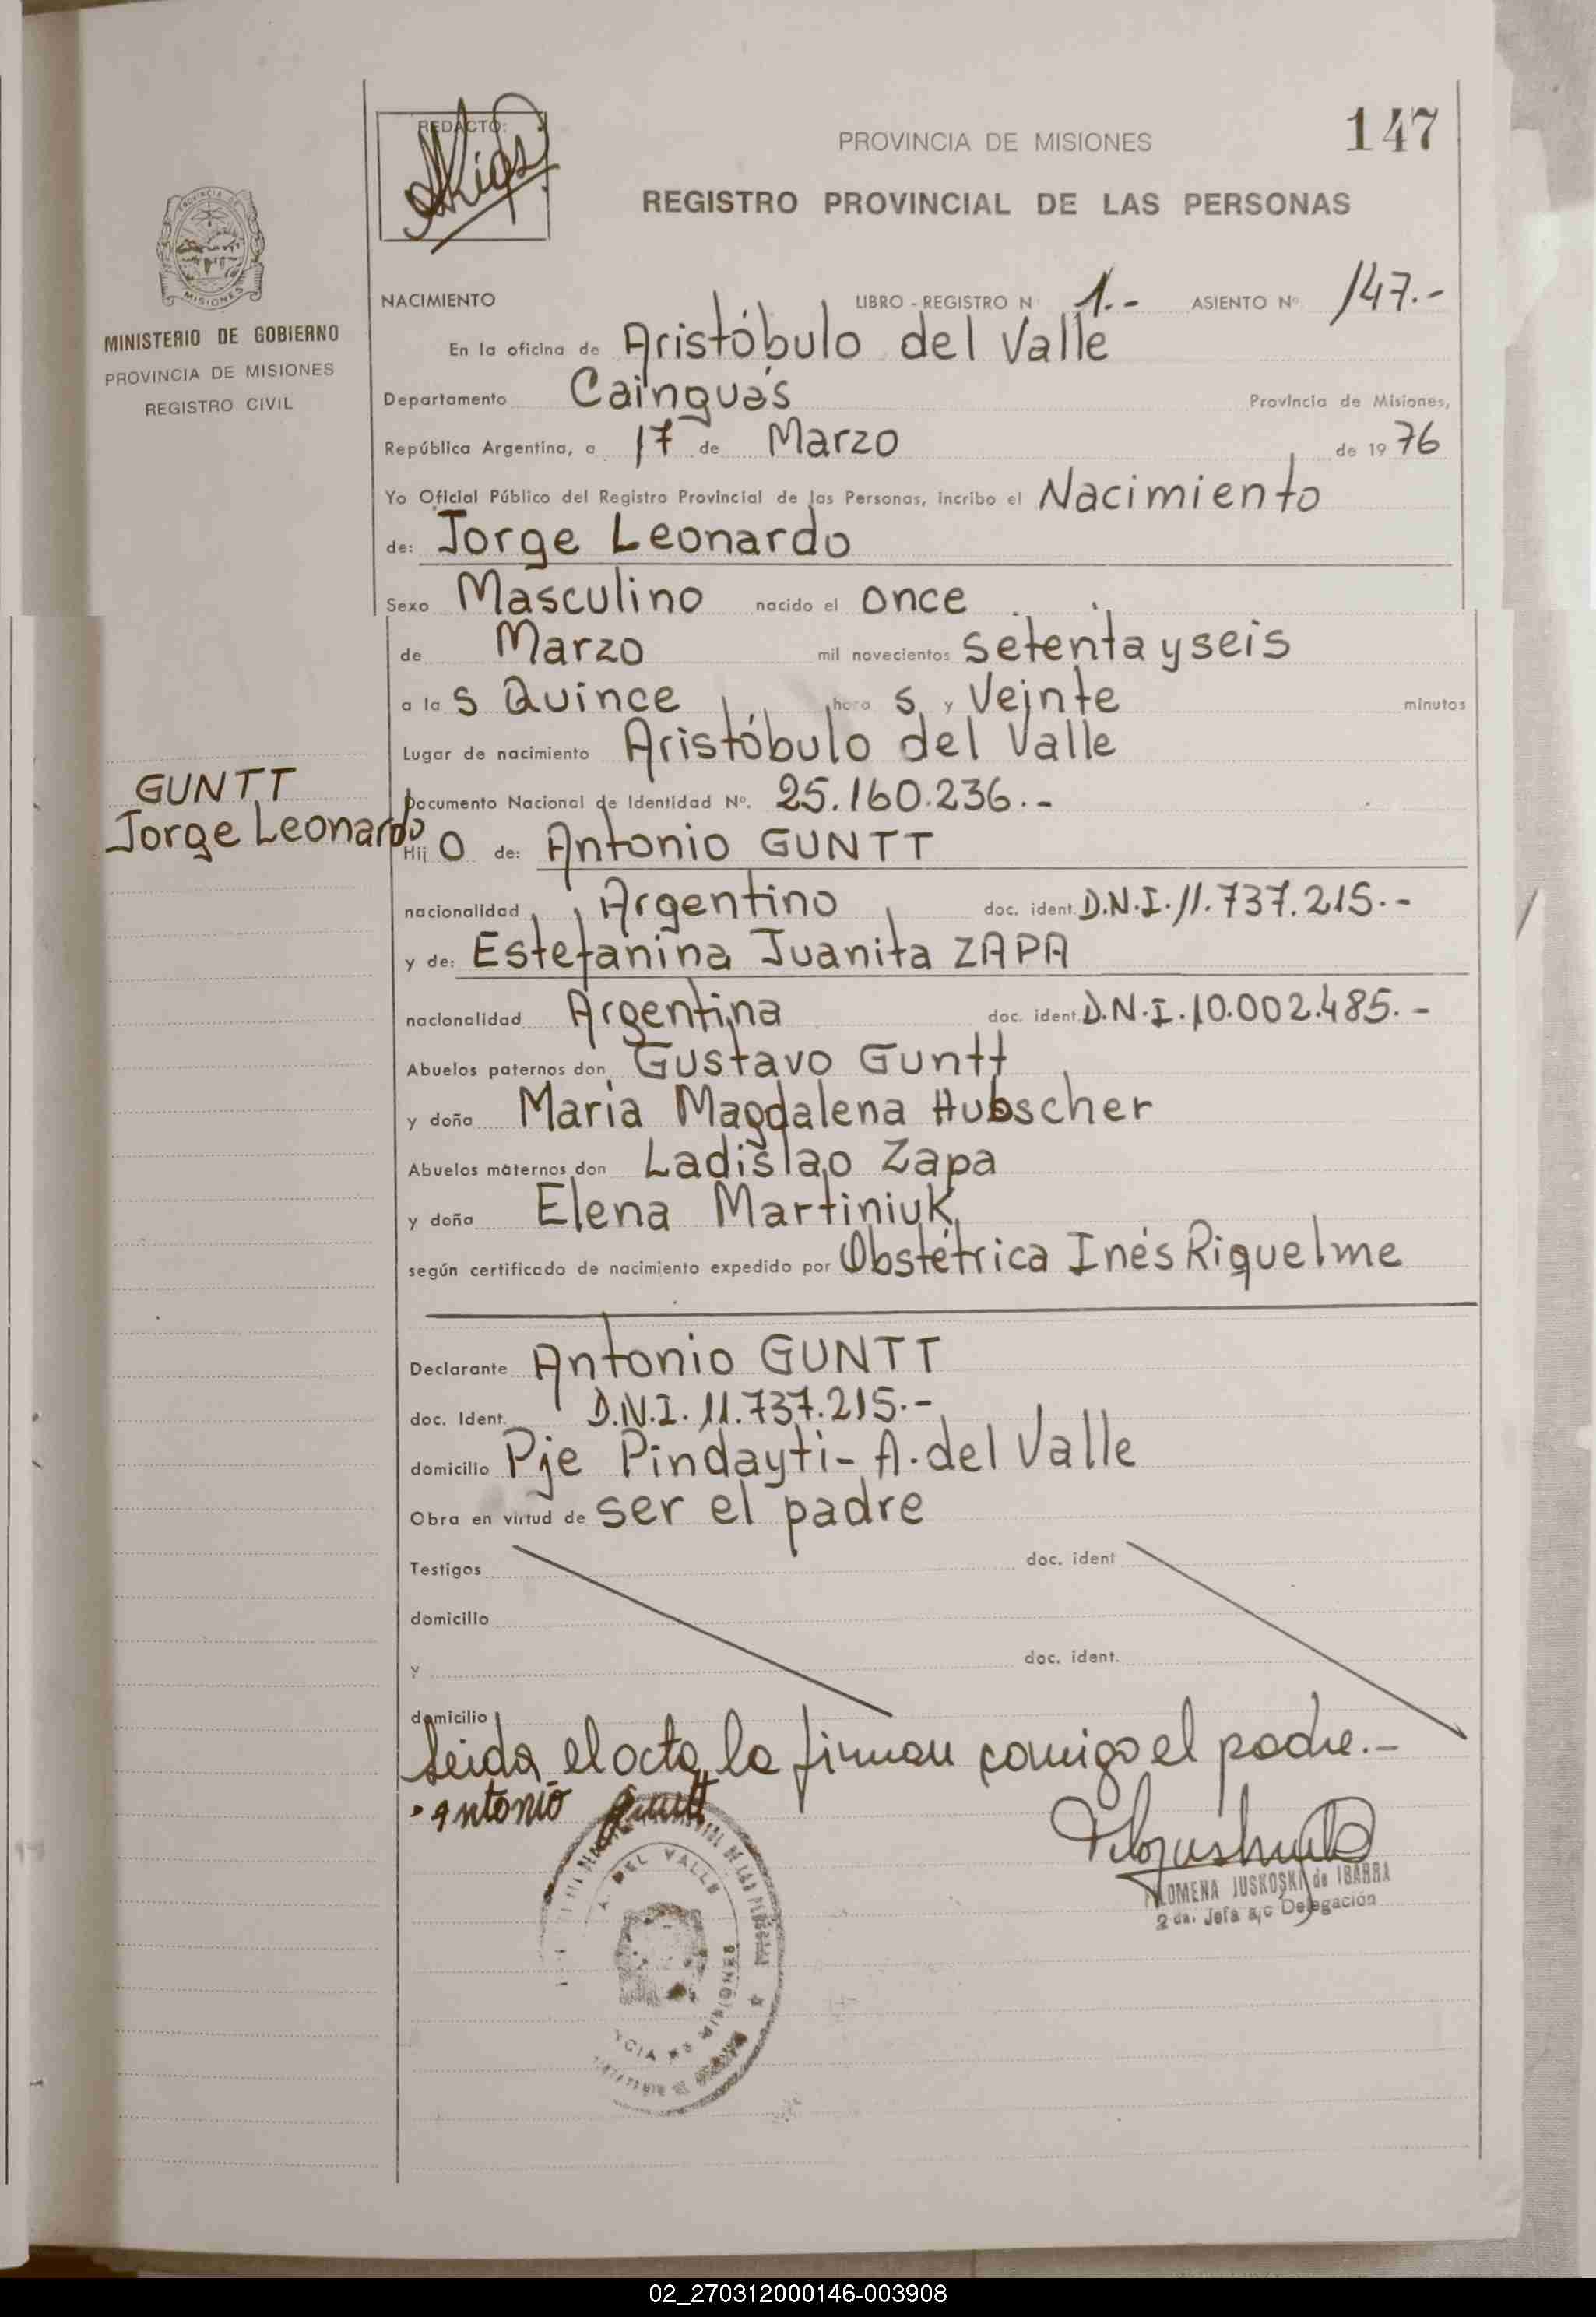 REDACTO:
PROVINCIA DE MISIONES
147
REGISTRO PROVINCIAL DE LAS PERSONAS
MISIONES
MINISTERIO DE GOBIERNO
PROVINCIA DE MISIONES
REGISTRO CIVIL
NACIMIENTO LIBRO - REGISTRO Nº 1.- ASIENTO Nº 147.-
En la oficina de Aristóbulo del Valle
Departamento Cainguás Provincia de Misiones,
República Argentina, a 17 de Marzo de 1976
Yo Oficial Público del Registro Provincial de las Personas, incribo el Nacimiento
de: Jorge Leonardo
Sexo Masculino nacido el once
de Marzo mil novecientos setenta y seis
a la s Quince hora s y Veinte minutos
Lugar de nacimiento Aristóbulo del Valle
GUNTT
Jorge Leonardo
Documento Nacional de Identidad Nº. 25.160.236.-
Hij o de: Antonio GUNTT
nacionalidad Argentino doc. ident. D.N.I. 11.737.215.-
y de: Estefanina Juanita ZAPA
nacionalidad Argentina doc. ident. D.N.I. 10.002.485.-
Abuelos paternos don Gustavo Guntt
y doña Maria Magdalena Hubscher
Abuelos maternos don Ladislao Zapa
y doña Elena Martiniuk
según certificado de nacimiento expedido por Obstétrica Inés Riquelme
Declarante Antonio GUNTT
doc. Ident. D.N.I. 11.737.215.-
domicilio Pje Pindayti - A. del Valle
Obra en virtud de ser el padre
Testigos doc. ident
domicilio
y doc. ident.
domicilio
Leida el acta, la firman comigo el padre.-
antonio guntt
A. DEL VALLE
FILOMENA JUSKOSKI de IBARRA
2 da. Jefa a/c Delegación
02_270312000146-003908